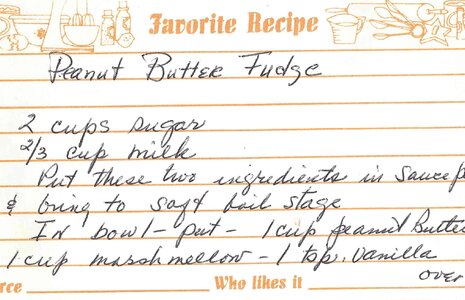 Favorite Recipe
Peanut Butter Fudge
2 cups sugar
2/3 cup milk
Put these two ingredients in saucep
& bring to soft boil stage
In bowl - put - 1 cup peanut butte
1 cup marshmellow - 1 tsp. vanilla
over
rce Who likes it